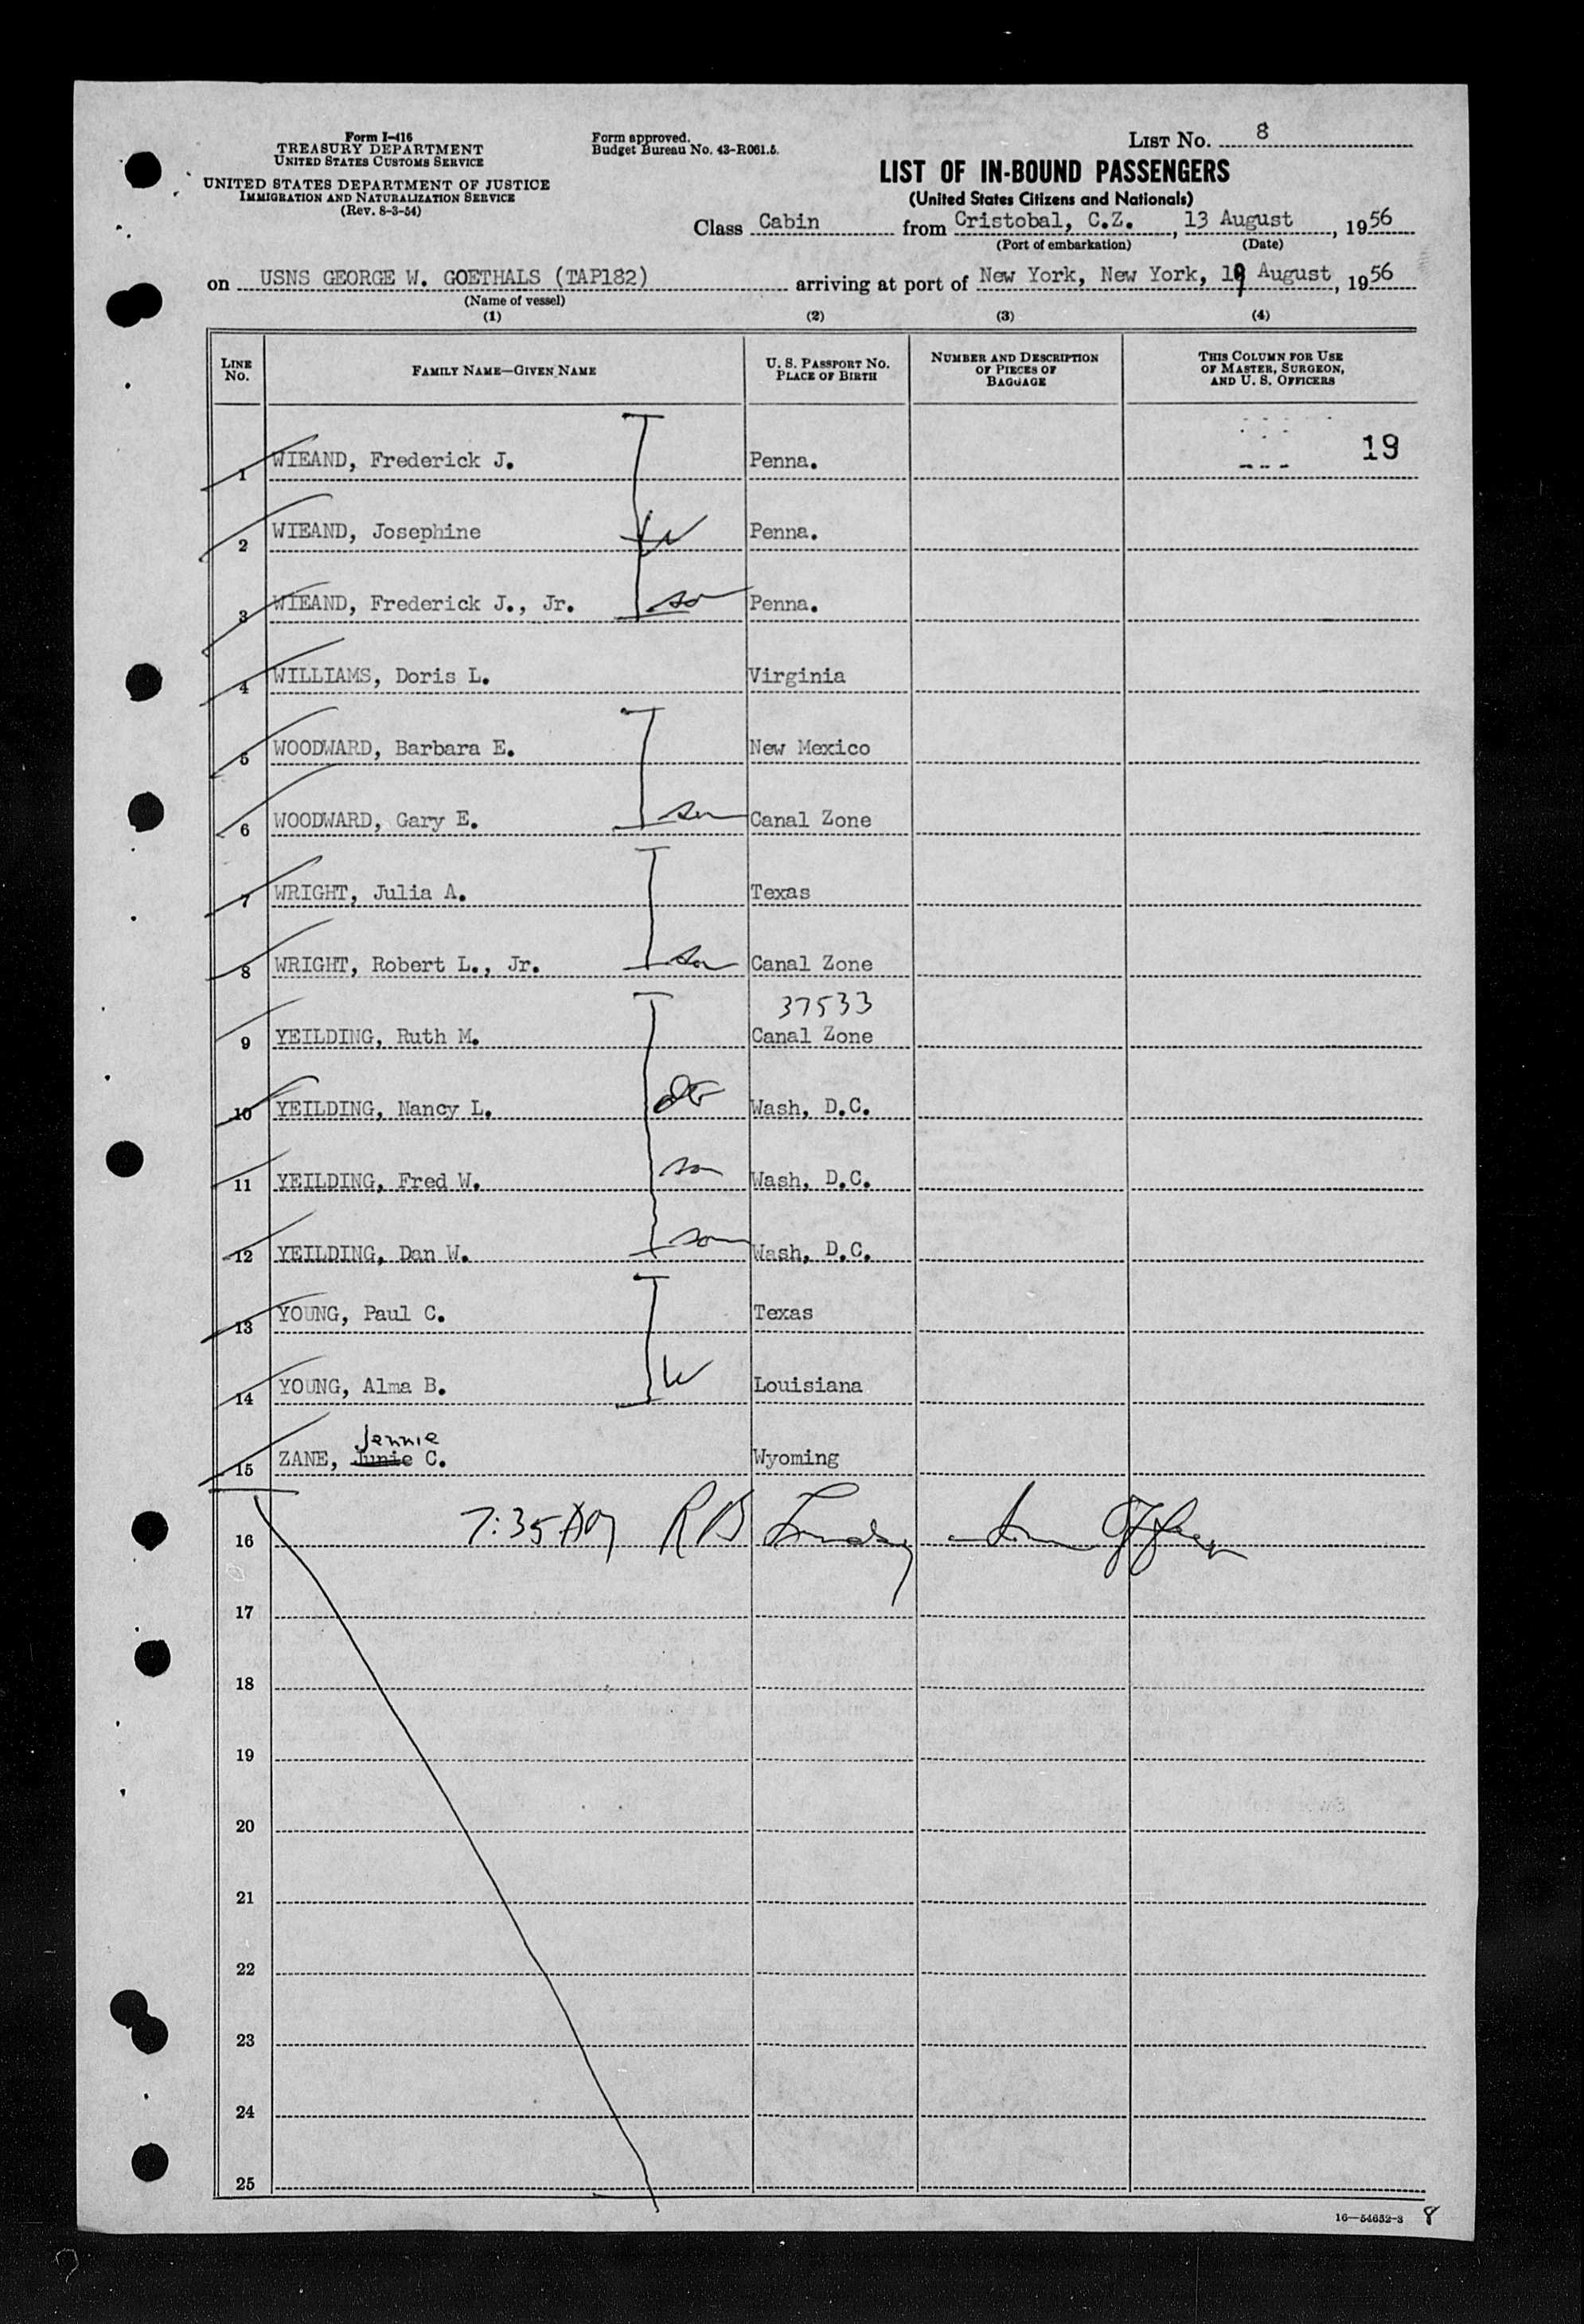 Form I-416
TREASURY DEPARTMENT
UNITED STATES CUSTOMS SERVICE
UNITED STATES DEPARTMENT OF JUSTICE
IMMIGRATION AND NATURALIZATION SERVICE
(Rev. 8-3-54)
Form approved.
Budget Bureau No. 43-R061.5.
LIST NO. 8
LIST OF IN-BOUND PASSENGERS
(United States Citizens and Nationals)
Class Cabin from Cristobal, C.Z., 13 August, 1956
(Port of embarkation) (Date)
on USNS GEORGE W. GOETHALS (TAP182) arriving at port of New York, New York, 19 August, 1956
(Name of vessel)
(1) (2) (3) (4)
LINE NO. FAMILY NAME—GIVEN NAME U. S. PASSPORT NO. PLACE OF BIRTH NUMBER AND DESCRIPTION OF PIECES OF BAGGAGE THIS COLUMN FOR USE OF MASTER, SURGEON, AND U. S. OFFICERS
1 WIEAND, Frederick J. Penna. 19
2 WIEAND, Josephine W Penna.
3 WIEAND, Frederick J., Jr. son Penna.
4 WILLIAMS, Doris L. Virginia
5 WOODWARD, Barbara E. New Mexico
6 WOODWARD, Gary E. son Canal Zone
7 WRIGHT, Julia A. Texas
8 WRIGHT, Robert L., Jr. son Canal Zone
37533
9 YEILDING, Ruth M. Canal Zone
10 YEILDING, Nancy L. Wash, D.C.
11 YEILDING, Fred W. son Wash, D.C.
12 YEILDING, Dan W. son Wash, D.C.
13 YOUNG, Paul C. Texas
14 YOUNG, Alma B. W Louisiana
Jennie
15 ZANE, Junie C. Wyoming
16 7:35 AM R B
17
18
19
20
21
22
23
24
25
16—54652-3 8